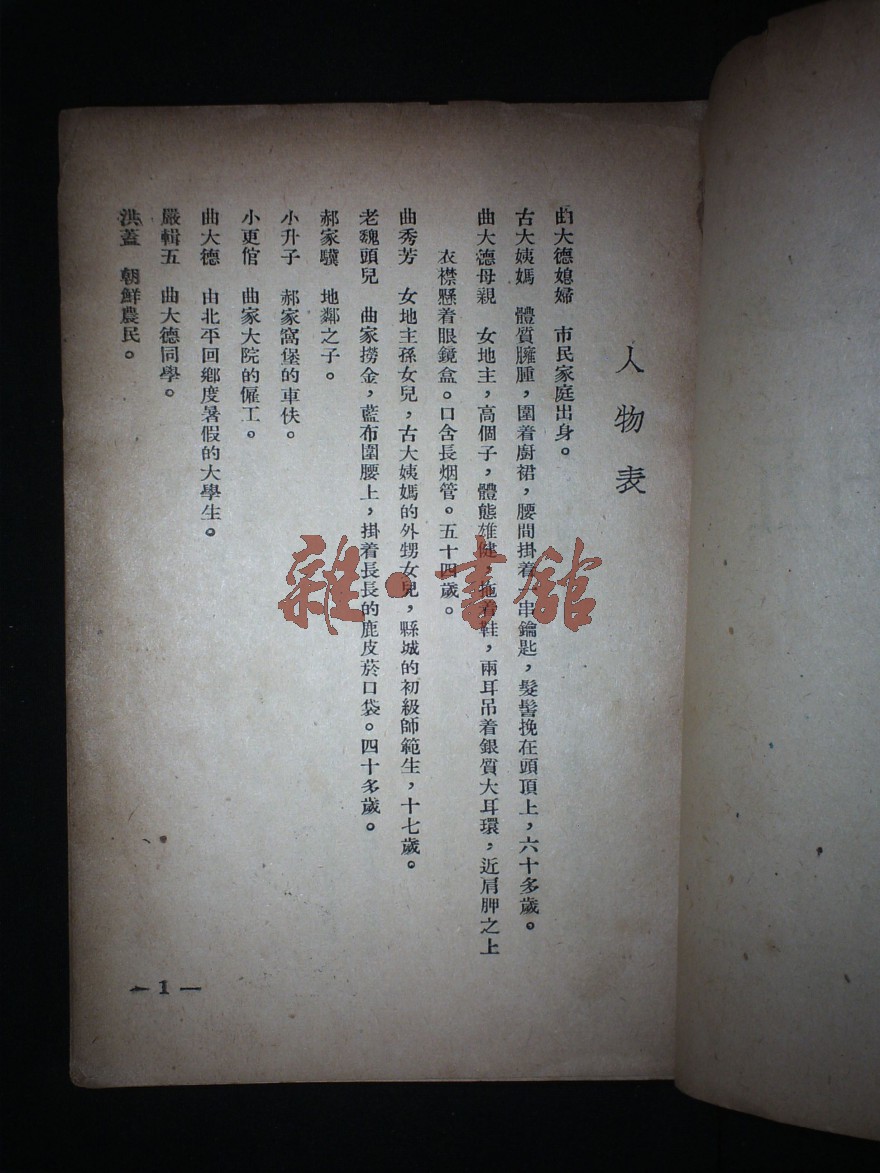 人物表
曲大德媳婦　市民家庭出身。
古大姨媽　體質臃腫，圍着廚裙，腰間掛着一串鑰匙，髮髻挽在頭頂上，六十多歲。
曲大德母親　女地主，高個子，體態雄健，拖着鞋，兩耳吊着銀質大耳環，近肩胛之上
衣襟懸着眼鏡盒。口含長烟管。五十四歲。
曲秀芳　女地主孫女兒，古大姨媽的外甥女兒，縣城的初級師範生，十七歲。
老魏頭兒　曲家撈金，藍布圍腰上，掛着長長的鹿皮菸口袋。四十多歲。
郝家驥　地鄰之子。
小升子　郝家窩堡的車伕。
小更倌　曲家大院的僱工。
曲大德　由北平回鄉度暑假的大學生。
嚴輯五　曲大德同學。
洪蓋　朝鮮農民。
— 1 —
雜·書館